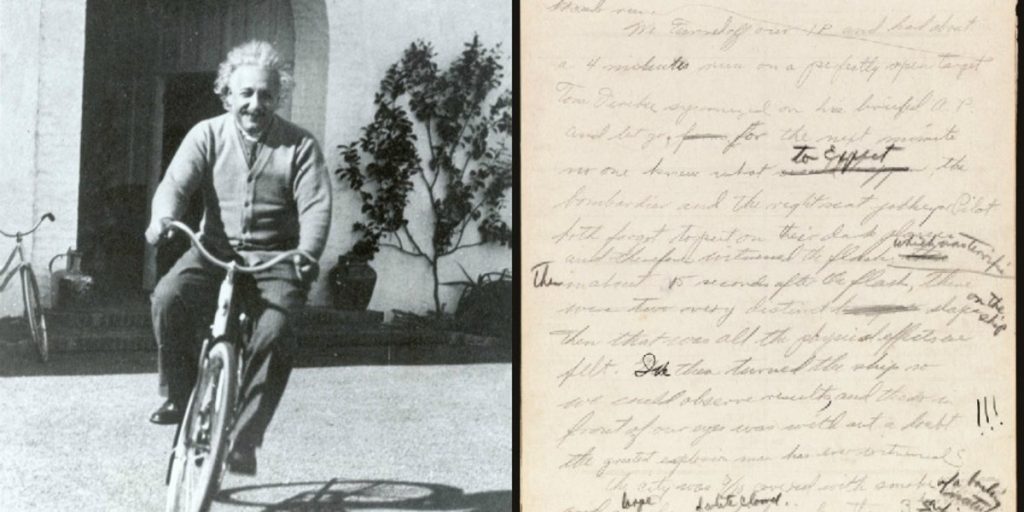 Mr. Turned off our IP and had about
a 4 minutes run on a perfectly open target
Tom Ferebee synchronized on his briefed A.P.
and let go, for the next minute
to Expect
no one knew what the
bombardier and the right seat jockey or Pilot
both forgot to put on their dark glasses
which was terrific
and therefore witnessed the flash
Then in about 15 seconds after the flash, there
on the ship
were two very distinct slaps
then that was all the physical effects we
felt. We then turned the ship so
we could observe results, and there in
front of our eyes was without a doubt
!!!
the greatest explosion man has ever witnessed
of a boiling
the city was 9/10 covered with smoke
large white cloud. 3
and